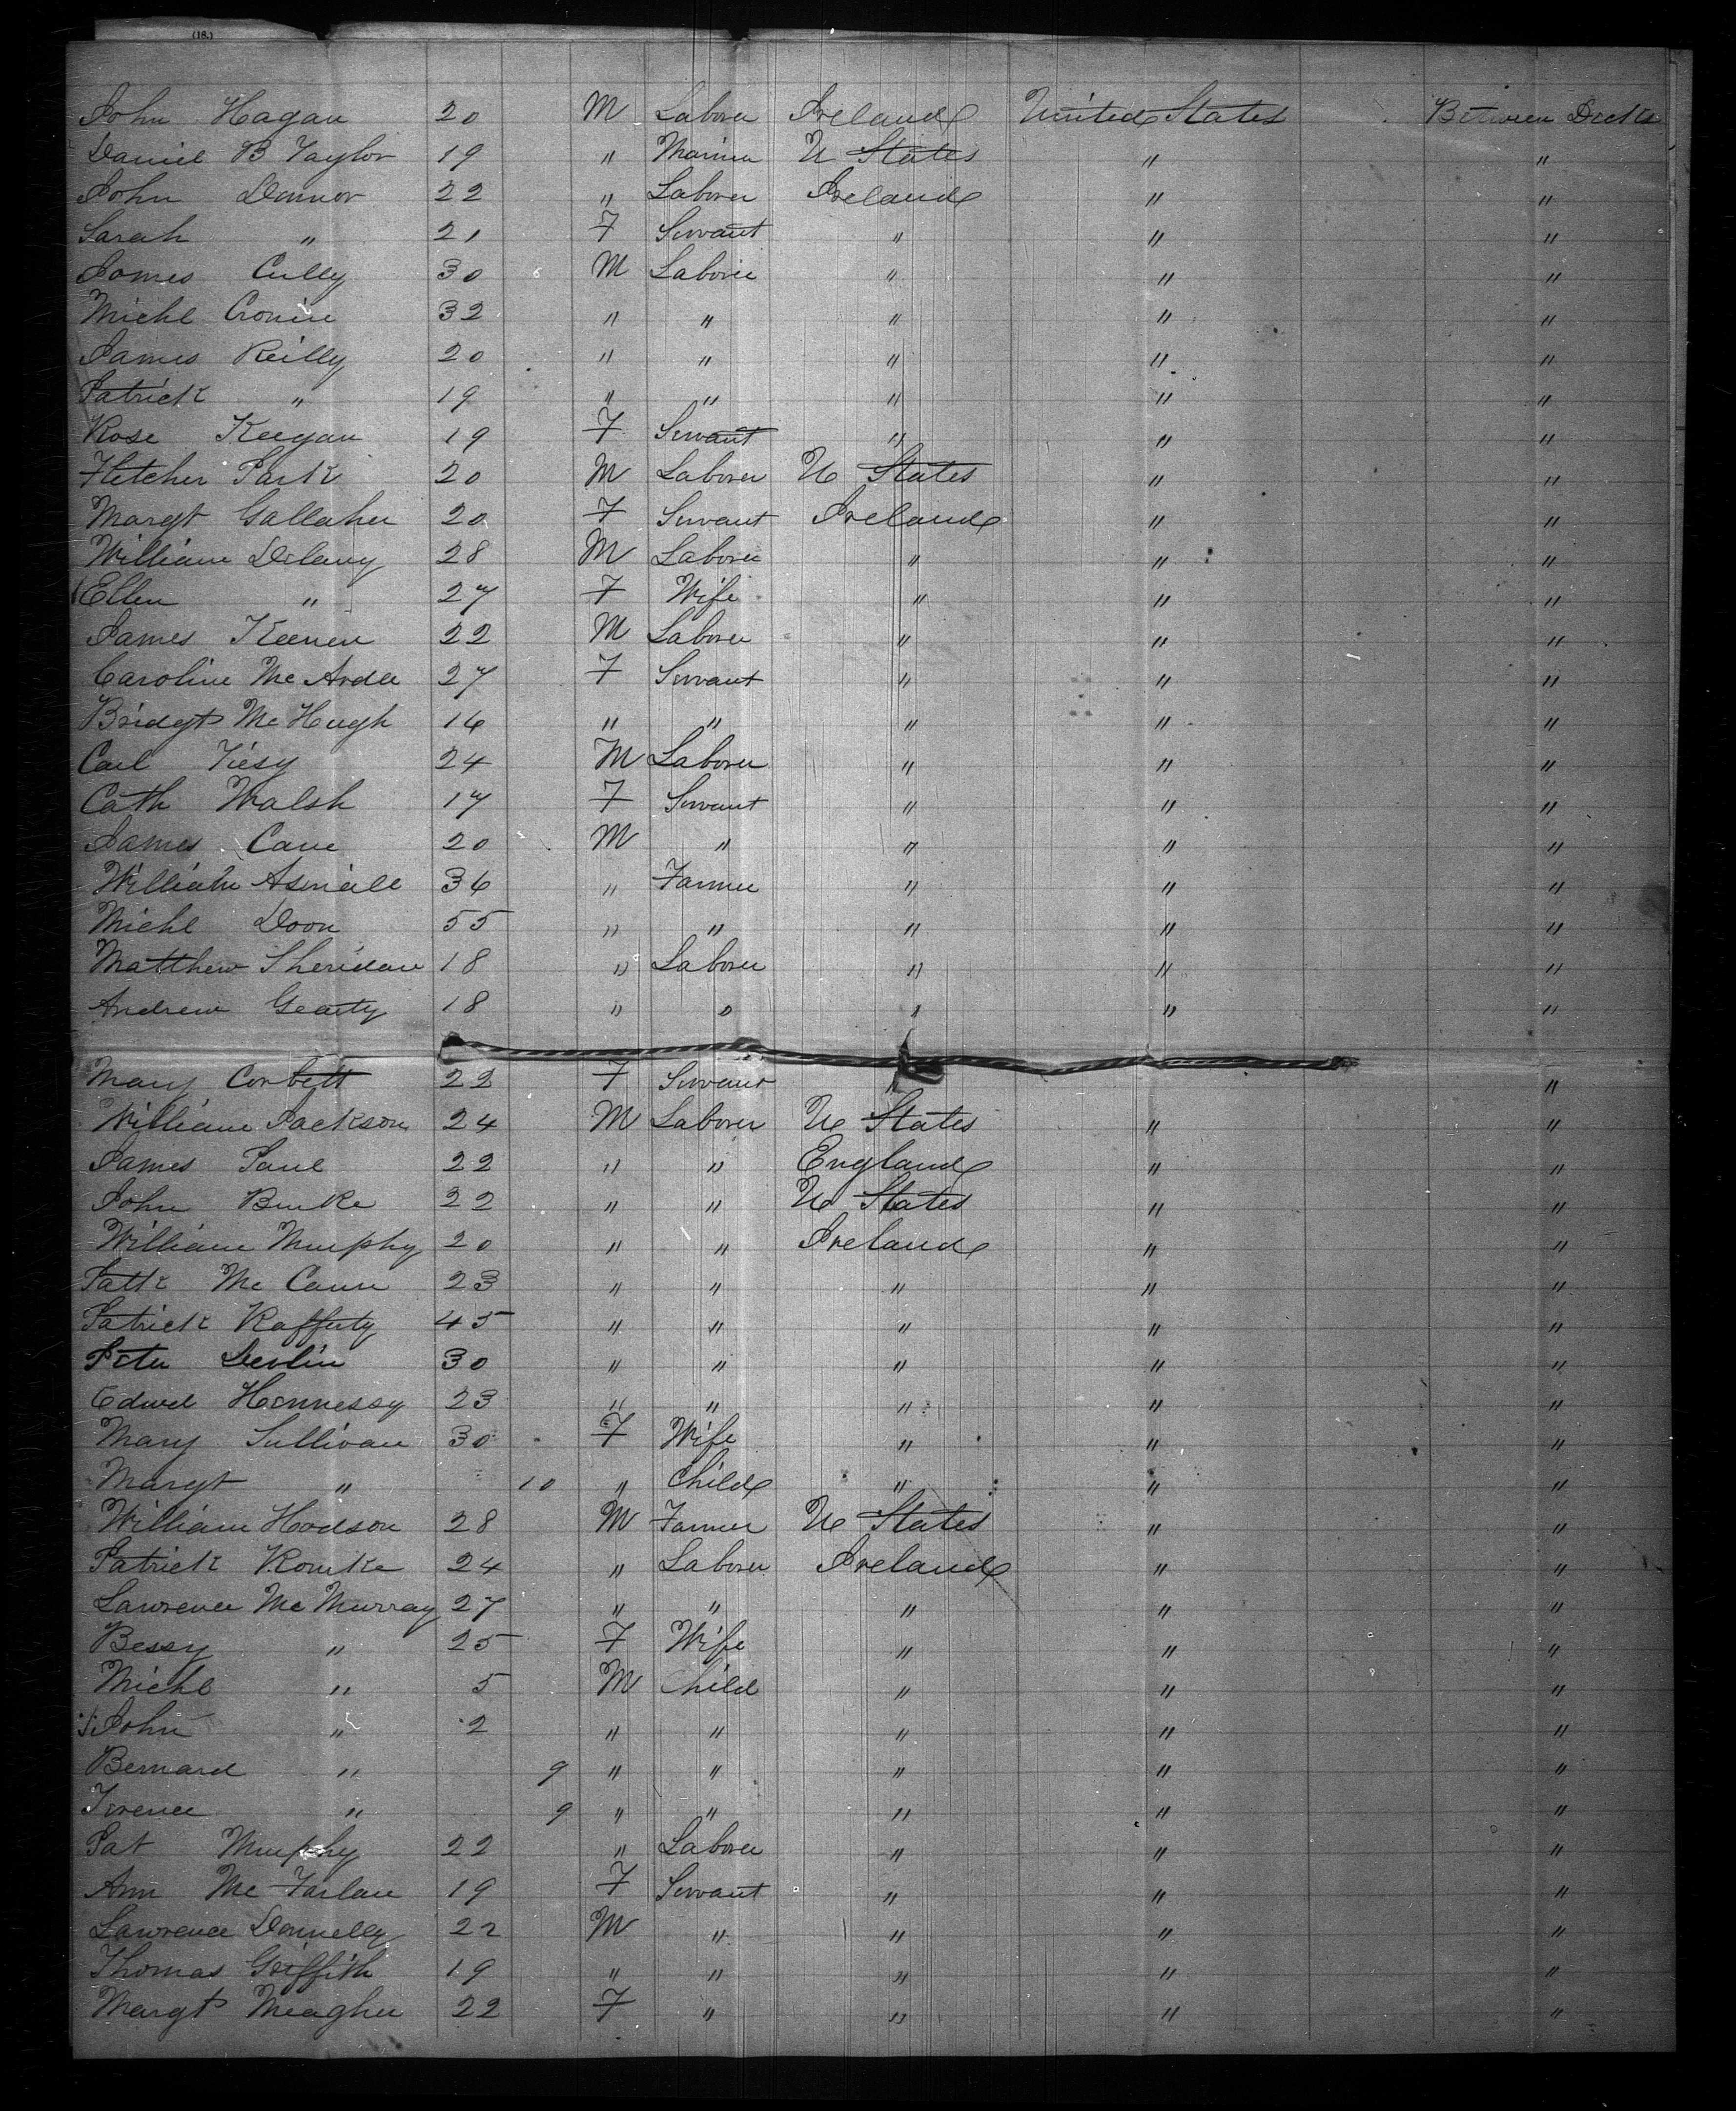 (18.)
John Hagan 20 M Laborer Ireland United States Between Decks
Daniel B Taylor 19 " Mariner U States " "
John Connor 22 " Laborer Ireland " "
Sarah " 21 F Servant " " "
James Cully 30 M Laborer " " "
Michl Cronin 32 " " " " "
James Reilly 20 " " " " "
Patrick " 19 " " " " "
Rose Keegan 19 F Servant " " "
Fletcher Park 20 M Laborer U States " "
Margt Gallaher 20 F Servant Ireland " "
William Delany 28 M Laborer " " "
Ellen " 27 F Wife " " "
James Keenen 22 M Laborer " " "
Caroline Mc Ardle 27 F Servant " " "
Bridgt Mc Hugh 16 " " " " "
Carl 24 M Laborer " " "
Cath Walsh 17 F Servant " " "
James Cane 20 M " " " "
William 36 " Farmer " " "
Michl Doon 55 " " " " "
Matthew Sheridan 18 " Laborer " " "
Andrew Gearty 18 " " " " "
Mary Corbett 22 F Servant " "
William Jackson 24 M Laborer U States " "
James Paul 22 " " England " "
John Burke 22 " " U States " "
William Murphy 20 " " Ireland " "
Patk Mc Cann 23 " " " " "
Patrick Rafferty 45 " " " " "
Peter Devlin 30 " " " " "
Edwd Hennessy 23 " " " " "
Mary Sullivan 30 F Wife " " "
Margt " 10 " Child " " "
William Hodson 28 M Farmer U States " "
Patrick Rourke 24 " Laborer Ireland " "
Lawrence Mc Murray 27 " " " " "
Bessy " 25 F Wife " " "
Michl " 5 M Child " " "
John " 2 " " " " "
Bernard " 9 " " " " "
Terence " 9 " " " " "
Pat Murphy 22 " Laborer " " "
Ann Mc Farlan 19 F Servant " " "
Lawrence Donnelly 22 M " " " "
Thomas Griffith 19 " " " " "
Margt Meagher 22 F " " " "